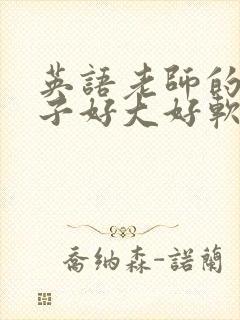 英語老師的
子好大好軟
喬納森-諾蘭